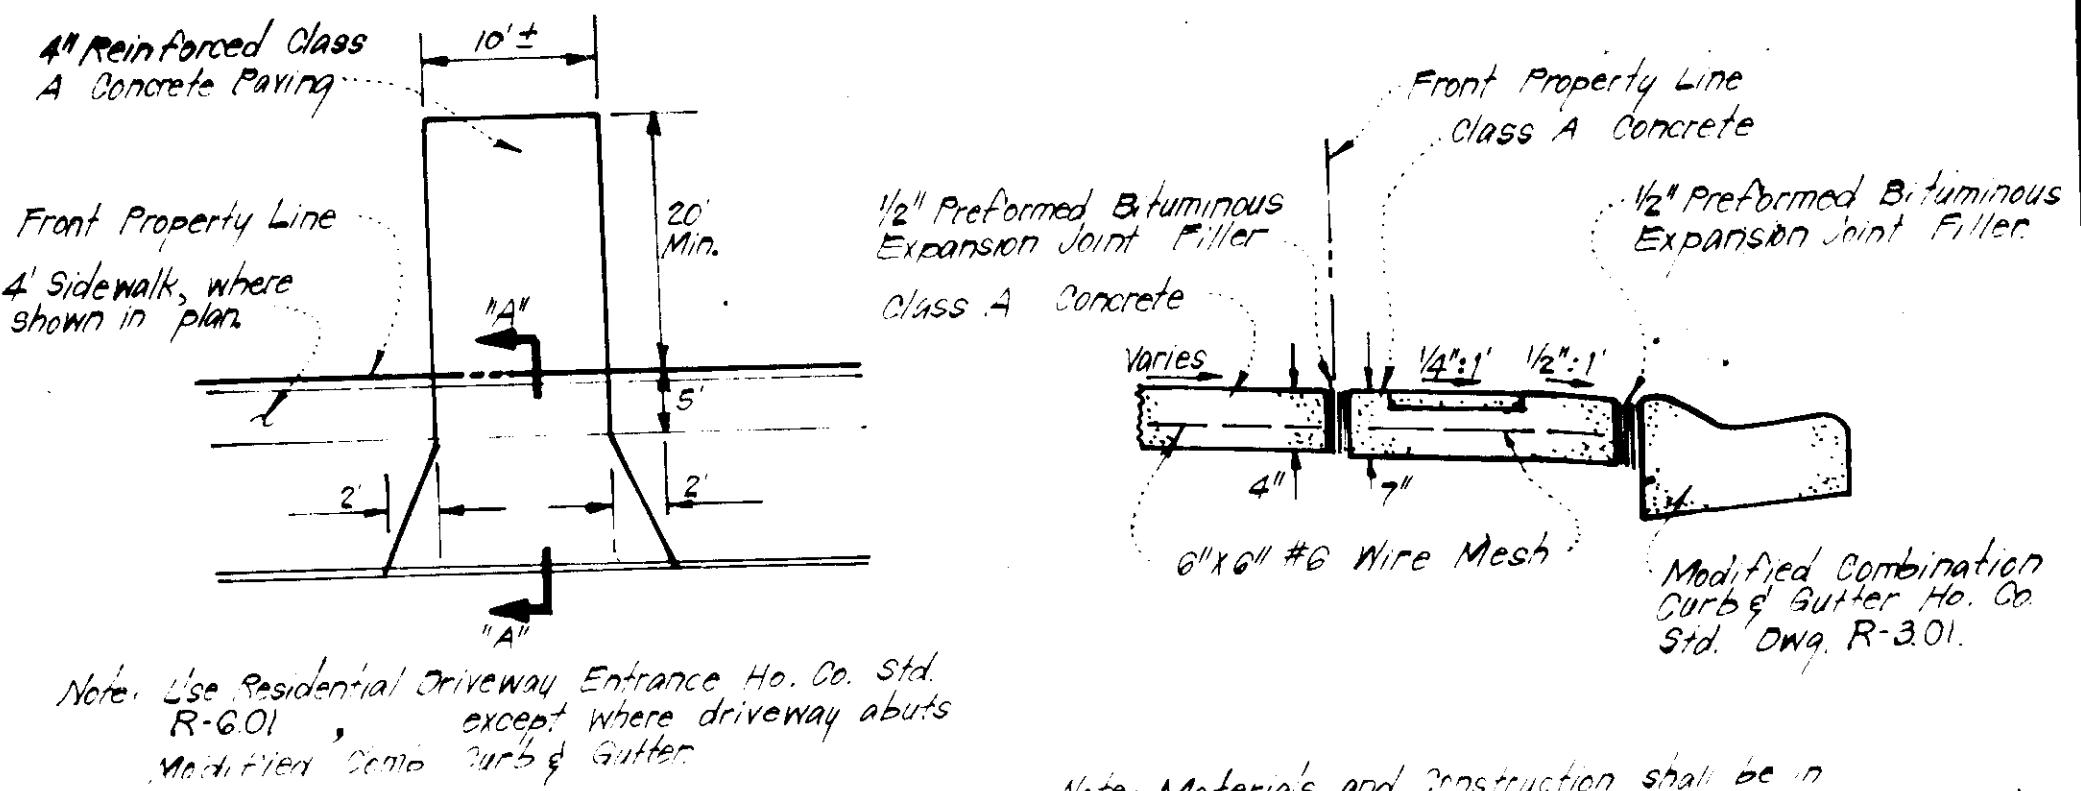 4" Reinforced Class
A Concrete Paving
10' ±
Front Property Line
4' Sidewalk, where
shown in plan.
20'
Min.
"A"
5'
2'
2'
"A"
Note: Use Residential Driveway Entrance Ho. Co. Std.
R-6.01 , except where driveway abuts
Modified Comb Curb & Gutter
Front Property Line
Class A Concrete
1/2" Preformed Bituminous
Expansion Joint Filler
1/2" Preformed Bituminous
Expansion Joint Filler
Class A Concrete
Varies
1/4":1'
1/2":1'
4"
7"
6"x6" #6 Wire Mesh
Modified Combination
Curb & Gutter Ho. Co.
Std. Dwg. R-3.01.
Note: Materials and Construction shall be in